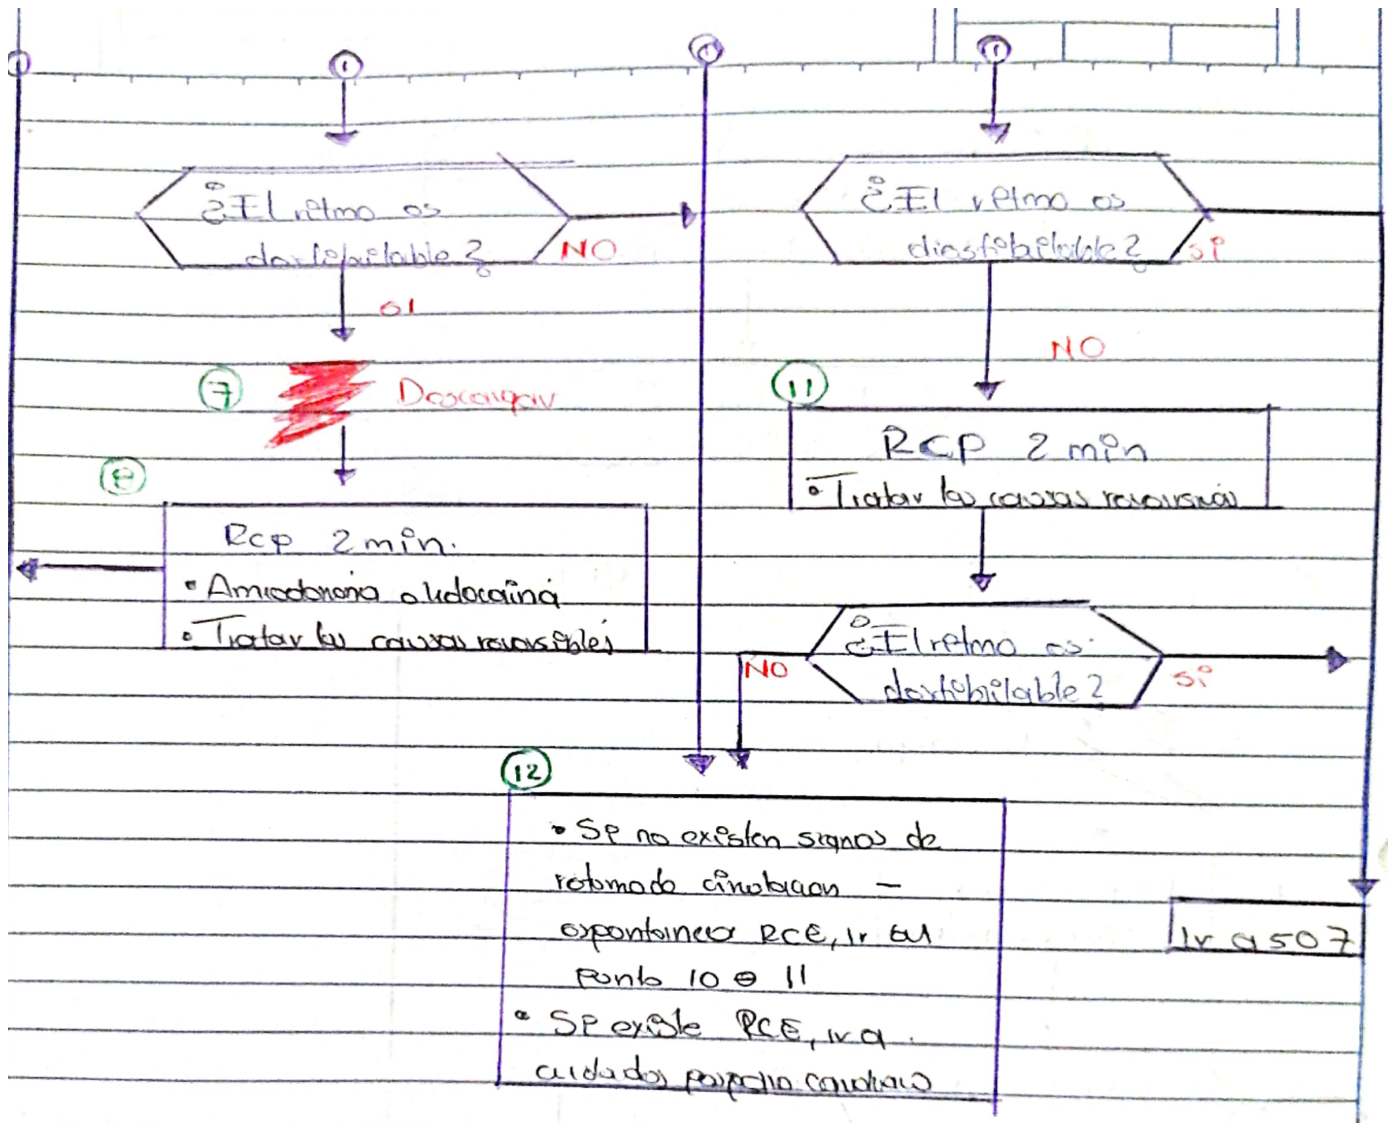 1
1
1
1
¿El ritmo es
desfibrilable?
NO
SI
7
Descargar
8
Rcp 2 min.
• Amiodorona o lidocaína
• Tratar las causas reversibles
¿El ritmo es
disfibrilable?
Si
NO
11
RCP 2 min
• Tratar las causas reversibles
¿El ritmo es
desfibrilable?
NO
Si
12
• Si no existen signos de
retorno de circulacion -
espontanea RCE, ir al
punto 10 o 11
• Si existe RCE, ir a
cuidados posparo cardiaco
Ir a 5 o 7